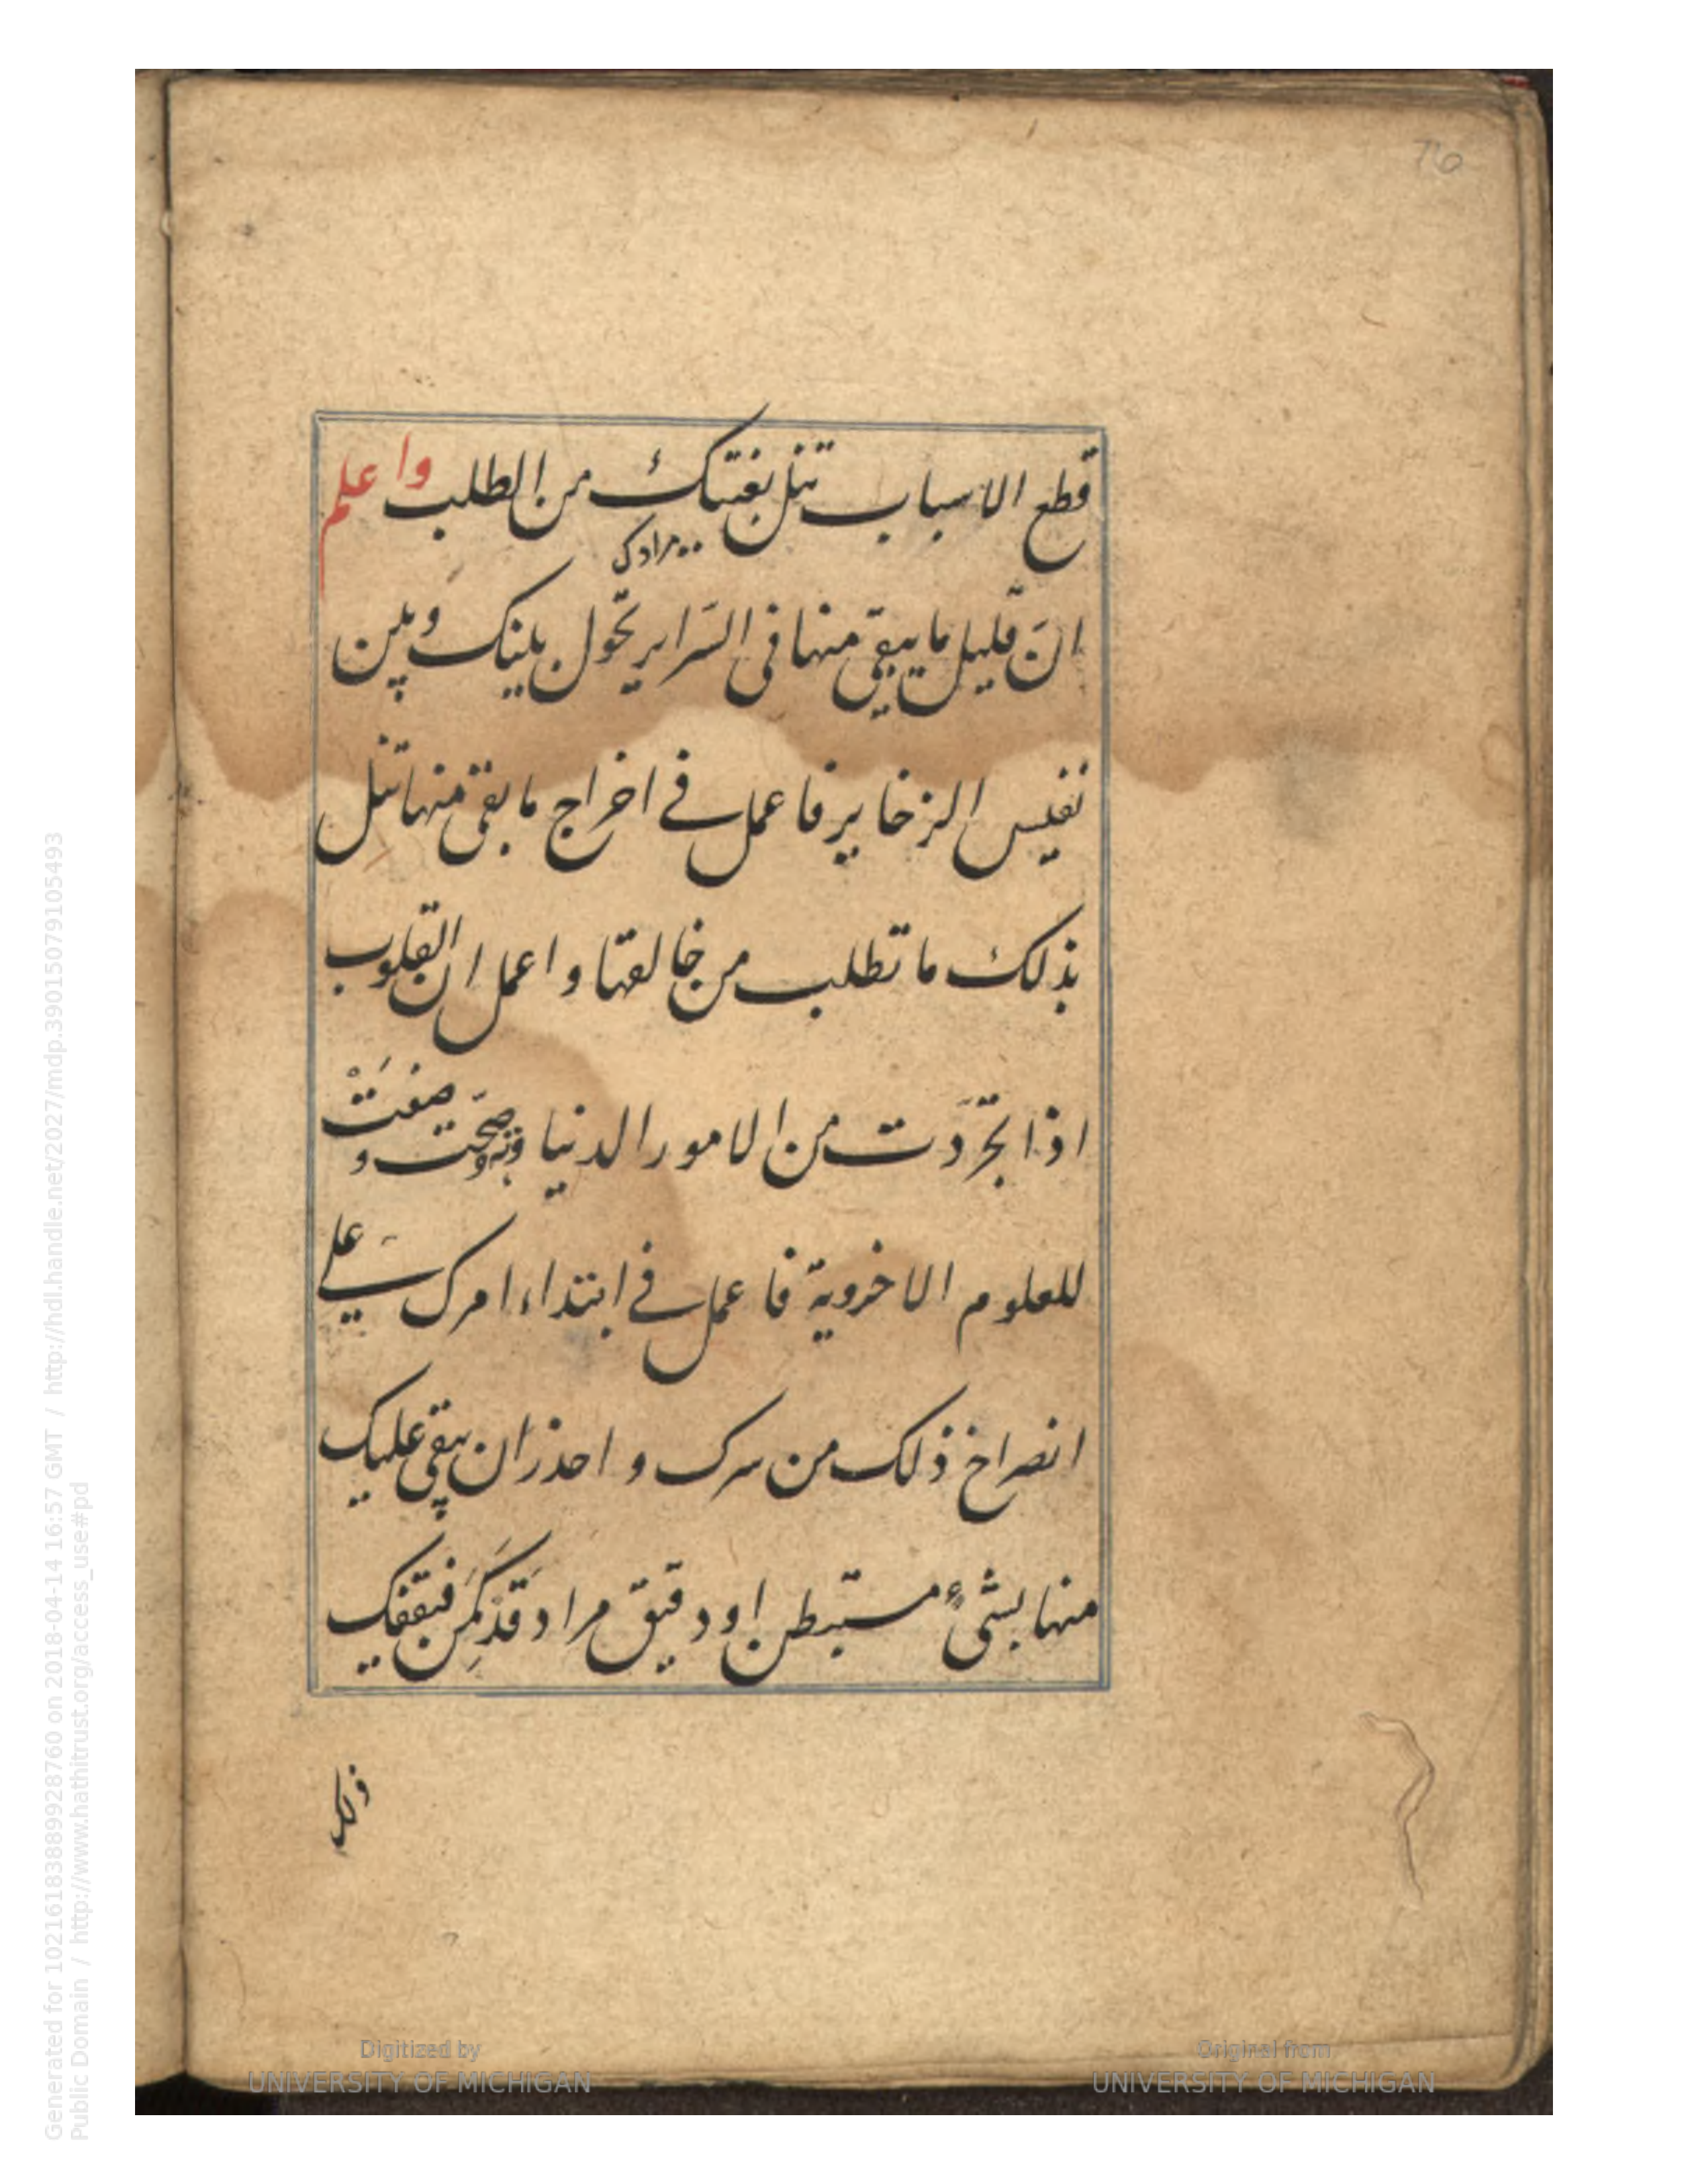 76
قطع الاسباب تنل بغيتك من الطلب واعلم
مرادک
انّ قليل ما يبقى منها فى السّراير تحول بينك وبين
نفيس الزخاير فاعمل في اخراج ما بقى منها تنل
بذلك ما تطلب من خالقها واعمل ان القلوب
اذا تجرّدت من الامور الدنياوية صحّت وصفتْ
للعلوم الاخروية فاعمل في ابتداء امرك على
انصراخ ذلك من سرك و احذر ان يبقى عليك
منها بشئ مستبطن او دقيق مراد قد كمن فيقفك
ذلك
Generated for 102161838899928760 on 2018-04-14 16:57 GMT / http://hdl.handle.net/2027/mdp.39015079105493
Public Domain / http://www.hathitrust.org/access_use#pd
Digitized by
UNIVERSITY OF MICHIGAN
Original from
UNIVERSITY OF MICHIGAN